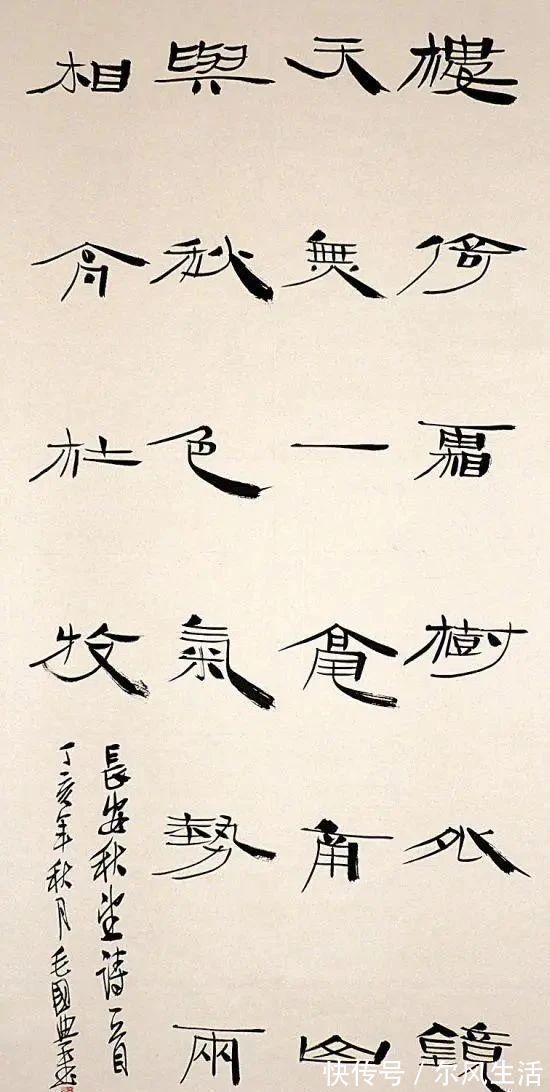 樓倚霜樹外鏡
天無一毫南山
與秋色氣勢兩
相高杜牧
長安秋望詩一首
丁亥年秋月毛國典書
快传号/尔风生活